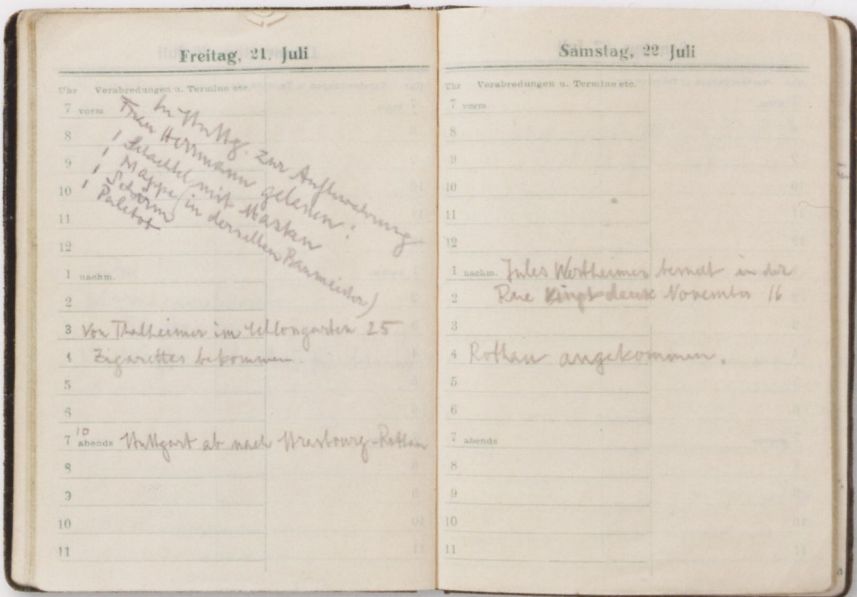 Freitag, 21. Juli
Uhr Verabredungen u. Termine etc.
7 vorm.
In Stuttg. zur Aufbewahrung
Frau Herrmann gelassen:
1 Schachtel mit Masken
1 Mappe (in derselben Baumeister)
1 Schirm
1 Paletot
8
9
10
11
12
1 nachm.
2
3 Von Thalheimer im 25
4 Zigaretten bekommen.
5
6
7 10 abends Stuttgart ab nach Strasbourg-Rothau
8
9
10
11
Samstag, 22. Juli
Uhr Verabredungen u. Termine etc.
7 vorm.
8
9
10
11
12
1 nachm. Jules Wertheimer besucht in der
2 Rue Vingt-deux Novembre 16
3
4 Rothau angekommen.
5
6
7 abends
8
9
10
11